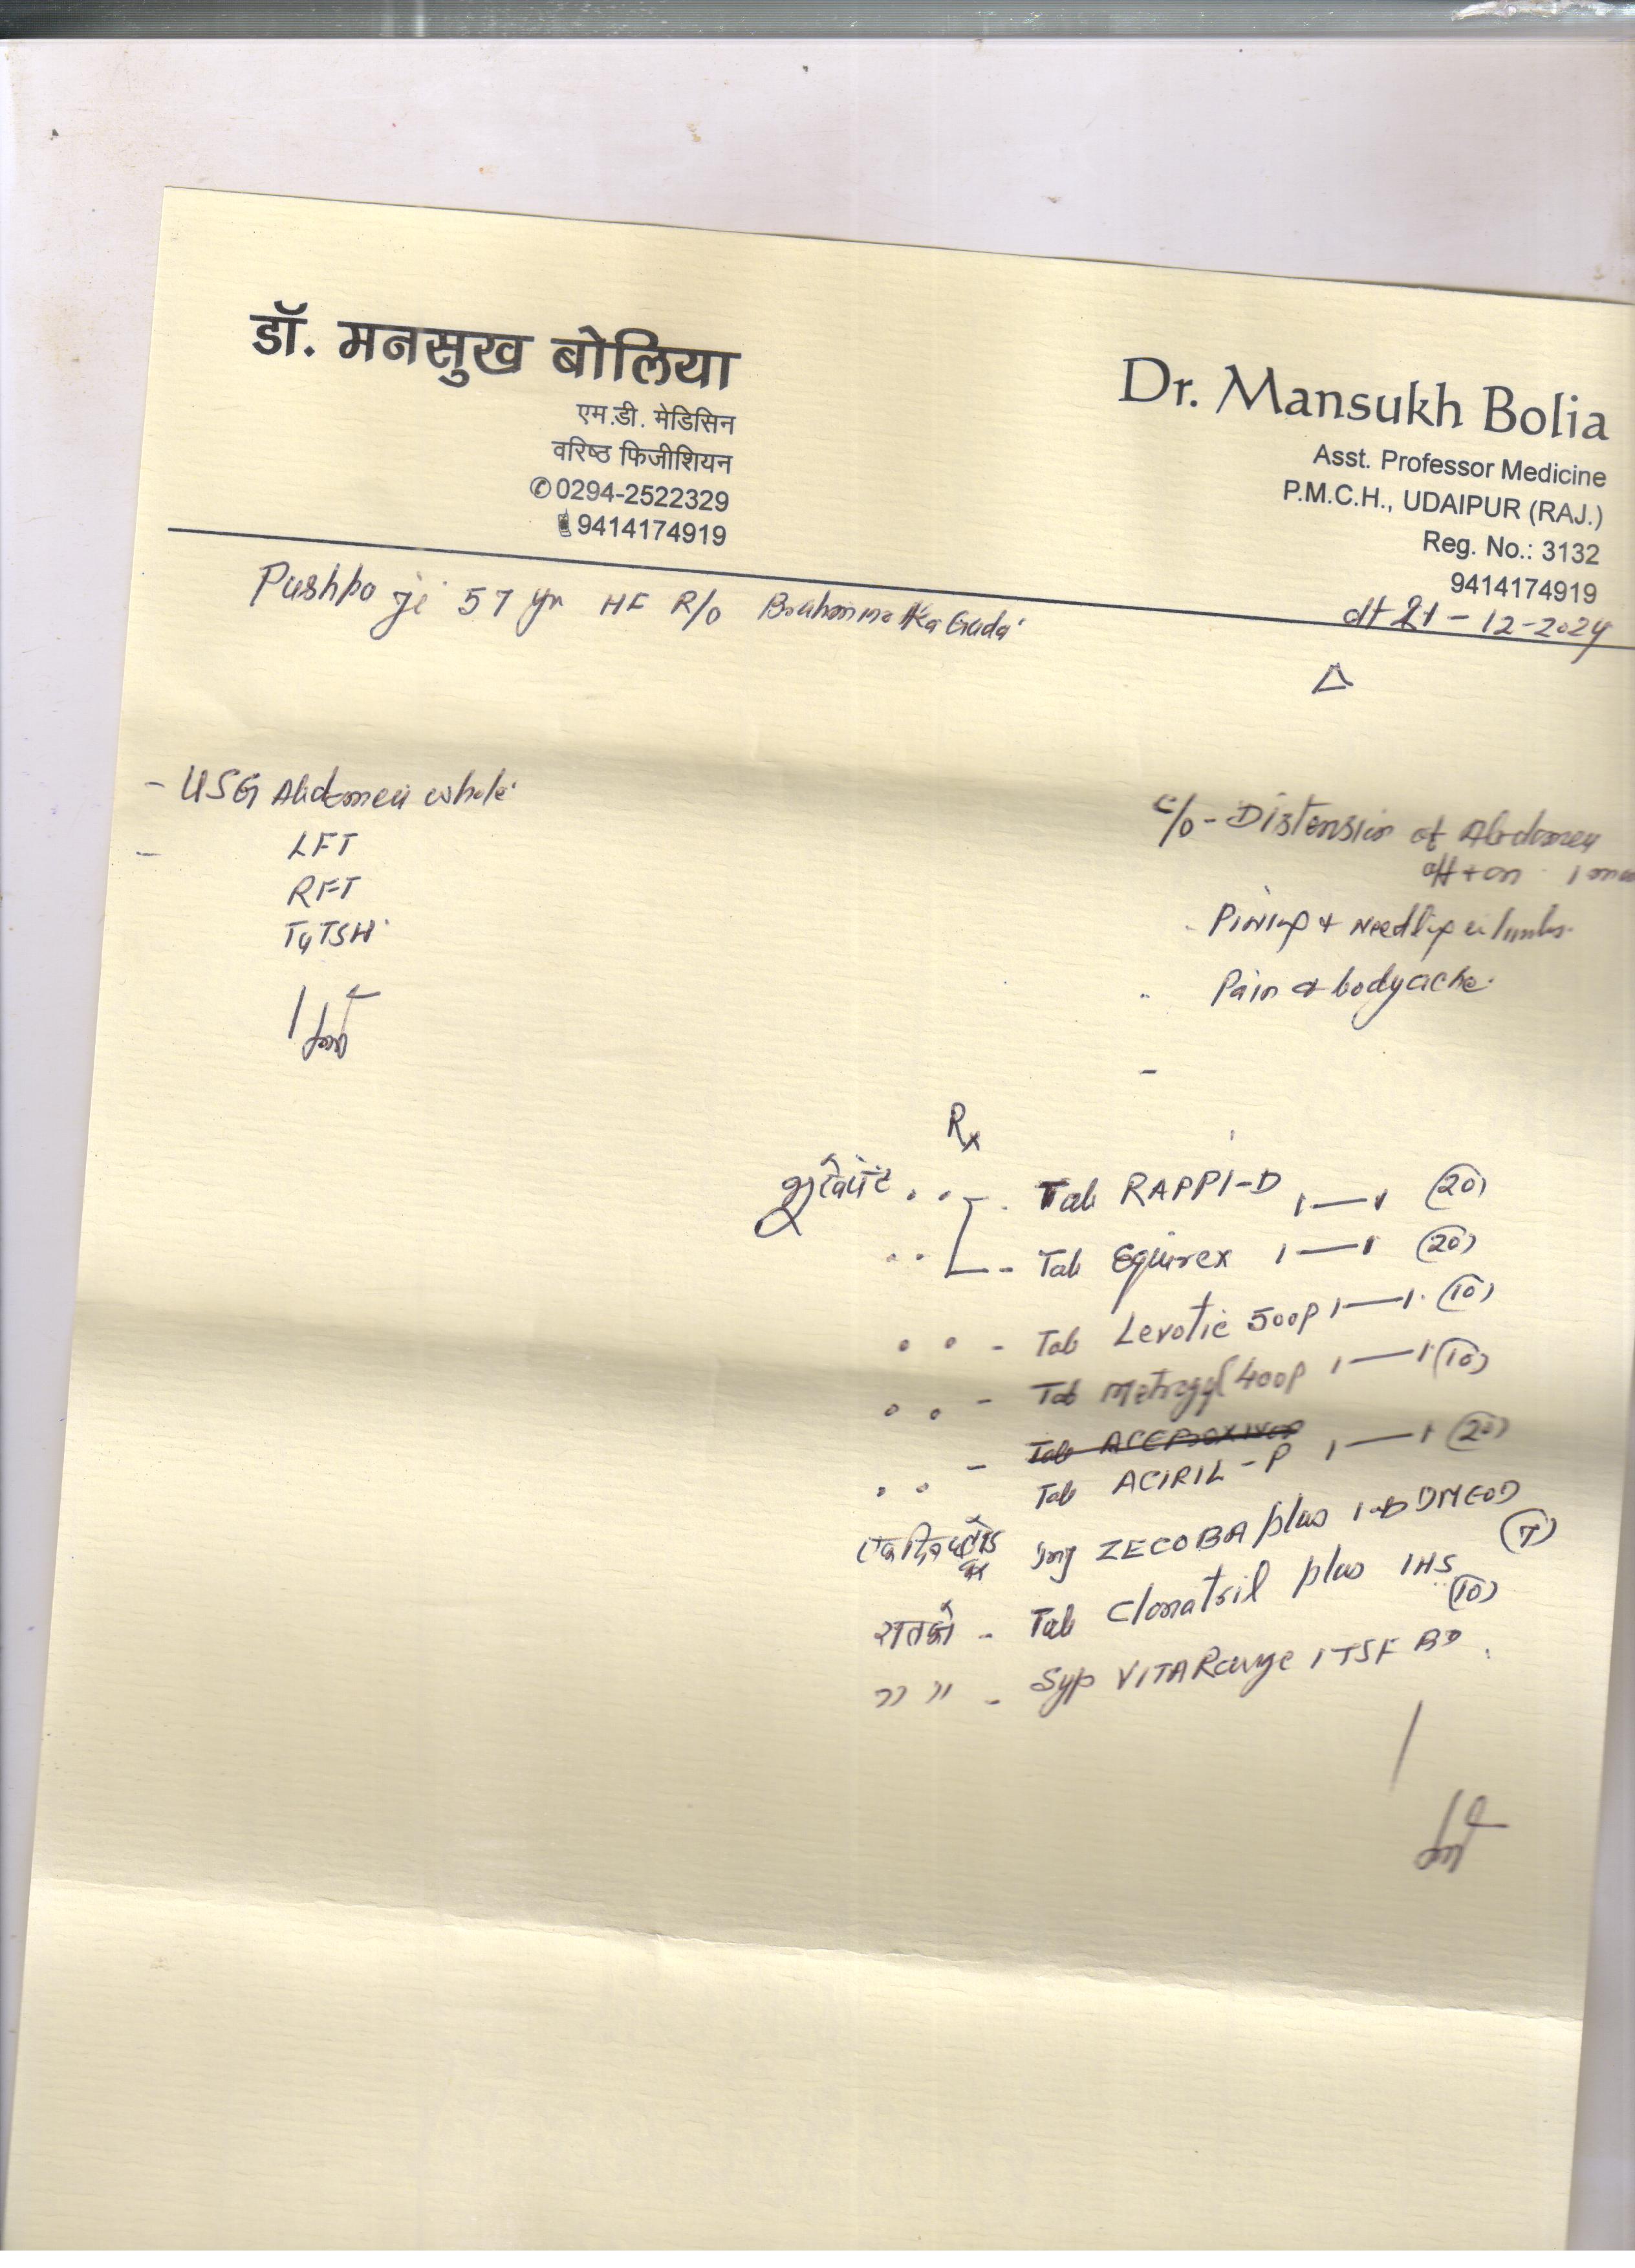 डॉ. मनसुख बोलिया
एम.डी. मेडिसिन
वरिष्ठ फिजीशियन
0294-2522329
9414174919
Dr. Mansukh Bolia
Asst. Professor Medicine
P.M.C.H., UDAIPUR (RAJ.)
Reg. No.: 3132
9414174919
Pushpa ji 57 yr HF R/o
dt 21-12-2024
- USG Abdomen whole
- LFT
RFT
T4 TSH
c/o - Distension of Abdomen
off + on 1
Pain & bodyache
Rx
Tab RAPPI-D 1—1 (20)
Tab Equirex 1—1 (20)
- Tab Levotic 500p 1—1 (10)
- Tab Metrogyl 400p 1—1 (10)
- Tab
Tab ACIRIL-P 1—1 (20)
Inj ZECOBA plus
(7)
रातको - Tab Clonatril plus 1HS
(10)
" " - Syp VITARange 1TSF BD